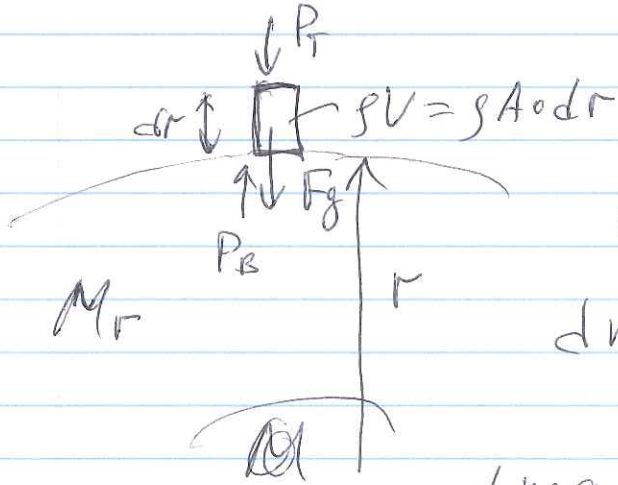 P_T
dr ρV = ρA∘dr
F_g
P_B
M_r r